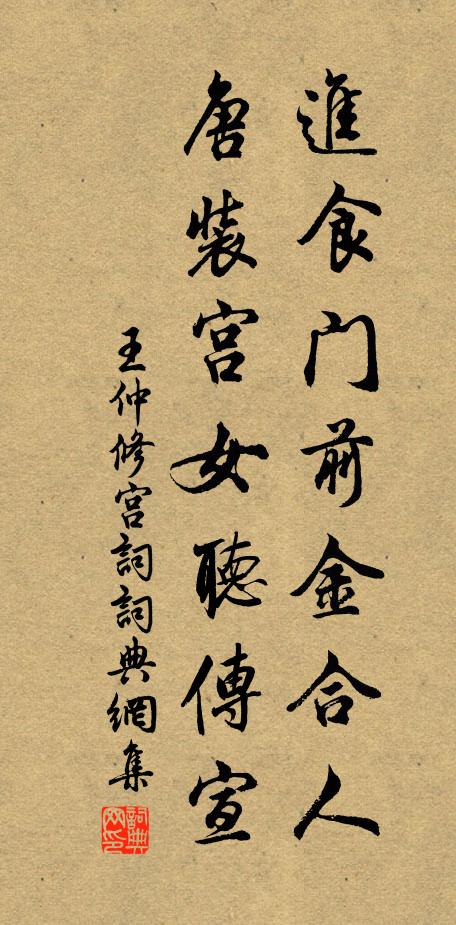 進食門前金合人
唐裝宮女聽傳宣
王仲修宮詞詞典網集
詞典网印